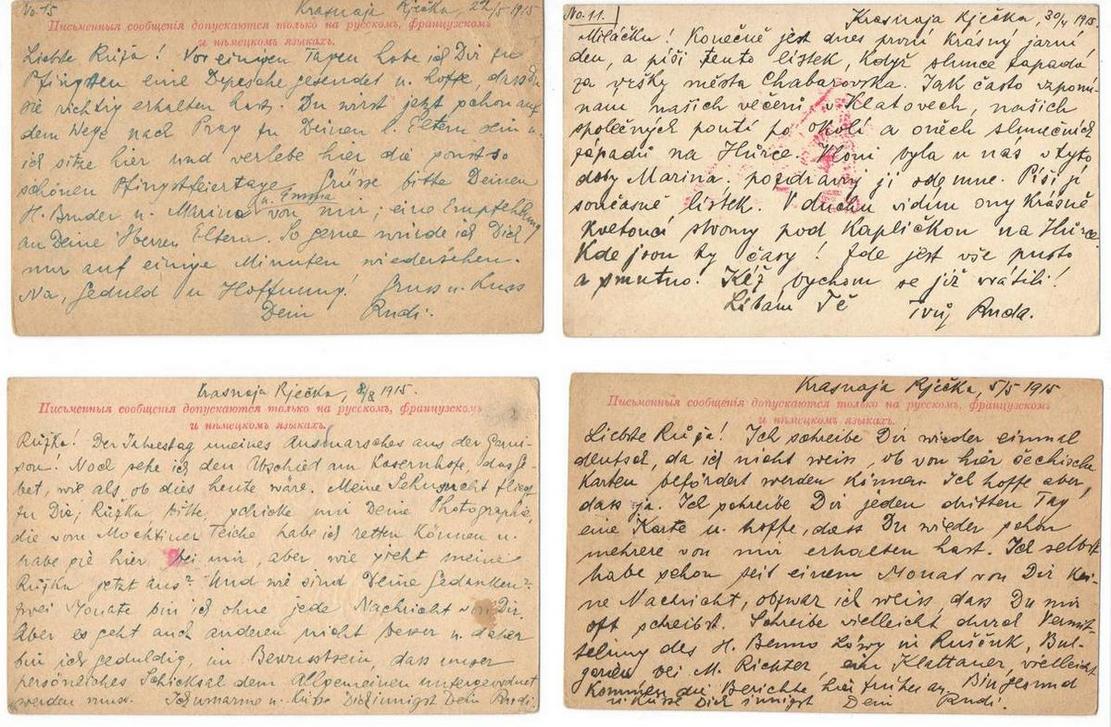 No. 15 Krasnaja Rječka, 22/5 1915
Письменныя сообщенія допускаются только на русскомъ, французскомъ
и нѣмецкомъ языкахъ.
Liebste Růža! Vor einigen Tagen habe ich Dir zu
Pfingsten eine Depesche gesendet u. hoffe, dass Du
sie richtig erhalten hast. Du wirst jetzt schon auf
dem Wege nach Prag zu Deinen l. Eltern sein u.
ich sitze hier und verlebe hier die sonst so
schönen Pfingstfeiertage. Grüsse bitte Deinen
H. Bruder u. Marina u. Emma von mir; eine Empfehlung
an Deine Herren Eltern. So gerne würde ich Dich
nur auf einige Minuten wiedersehen.
Na, Geduld u Hoffnung! Gruss u. Kuss
Dein Rudi.
No. 11. Krasnaja Rječka, 30/4 1915.
Miláčku! Konečně jest dnes první krásný jarní
den, a píši tento lístek, když slunce zapadá
za vršky města Chabarovska. Jak často vzpomí-
nám našich večerů v Klatovech, našich
společných poutí po okolí a oněch slunečních
západů na Hůrce. Vloni byla u nás v tyto
doby Marina. pozdravuj ji ode mne. Píši jí
současně lístek. V duchu vidím ony krásné
kvetoucí stromy pod Kapličkou na Hůrce.
Kde jsou ty časy! Zde jest vše pusto
a smutno. Kéž bychom se již vrátili!
Líbám Tě Tvůj Ruda.
Krasnaja Rječka, 8/8 1915.
Письменныя сообщенія допускаются только на русскомъ, французскомъ
и нѣмецкомъ языкахъ.
Růžka! Der Jahrestag meines Ausmarsches aus der Garni-
son! Noch sehe ich den Abschied am Kasernhofe, das Ge-
bet, wie als ob dies heute wäre. Meine Sehnsucht fliegt
zu Dir, Růžka. Bitte, schicke mir Deine Photographie,
die vom Mochtiner Teiche habe ich retten können u.
habe sie hier bei mir, aber wie sieht meine
Růžka jetzt aus? Und wie sind Deine Gedanken?
zwei Monate bin ich ohne jede Nachricht von Dir.
Aber es geht auch anderen nicht besser u. daher
bin ich geduldig, im Bewusstsein, dass unser
persönliches Schicksal dem Allgemeinen untergeordnet
werden muss. Ich umarme u. küsse Dich innigst Dein Rudi
Krasnaja Rječka, 5/5 1915
Письменныя сообщенія допускаются только на русскомъ, французскомъ
и нѣмецкомъ языкахъ.
Liebste Růža! Ich schreibe Dir wieder einmal
deutsch, da ich nicht weiss, ob von hier čechische
Karten befördert werden können. Ich hoffe aber,
dass ja. Ich schreibe Dir jeden dritten Tag
eine Karte u. hoffe, dass Du wieder schon
mehrere von mir erhalten hast. Ich selbst
habe schon seit einem Monat von Dir kei-
ne Nachricht, obzwar ich weiss, dass Du mir
oft schreibst. Schreibe vielleicht durch Vermit-
telung des H. Benno Löwy in Rusčuk, Bul-
garien bei M. Richter, ein Klattauer, vielleicht
kommen die Berichte hier früher an. Bin gesund
u. küsse Dich innigst Dein Rudi.